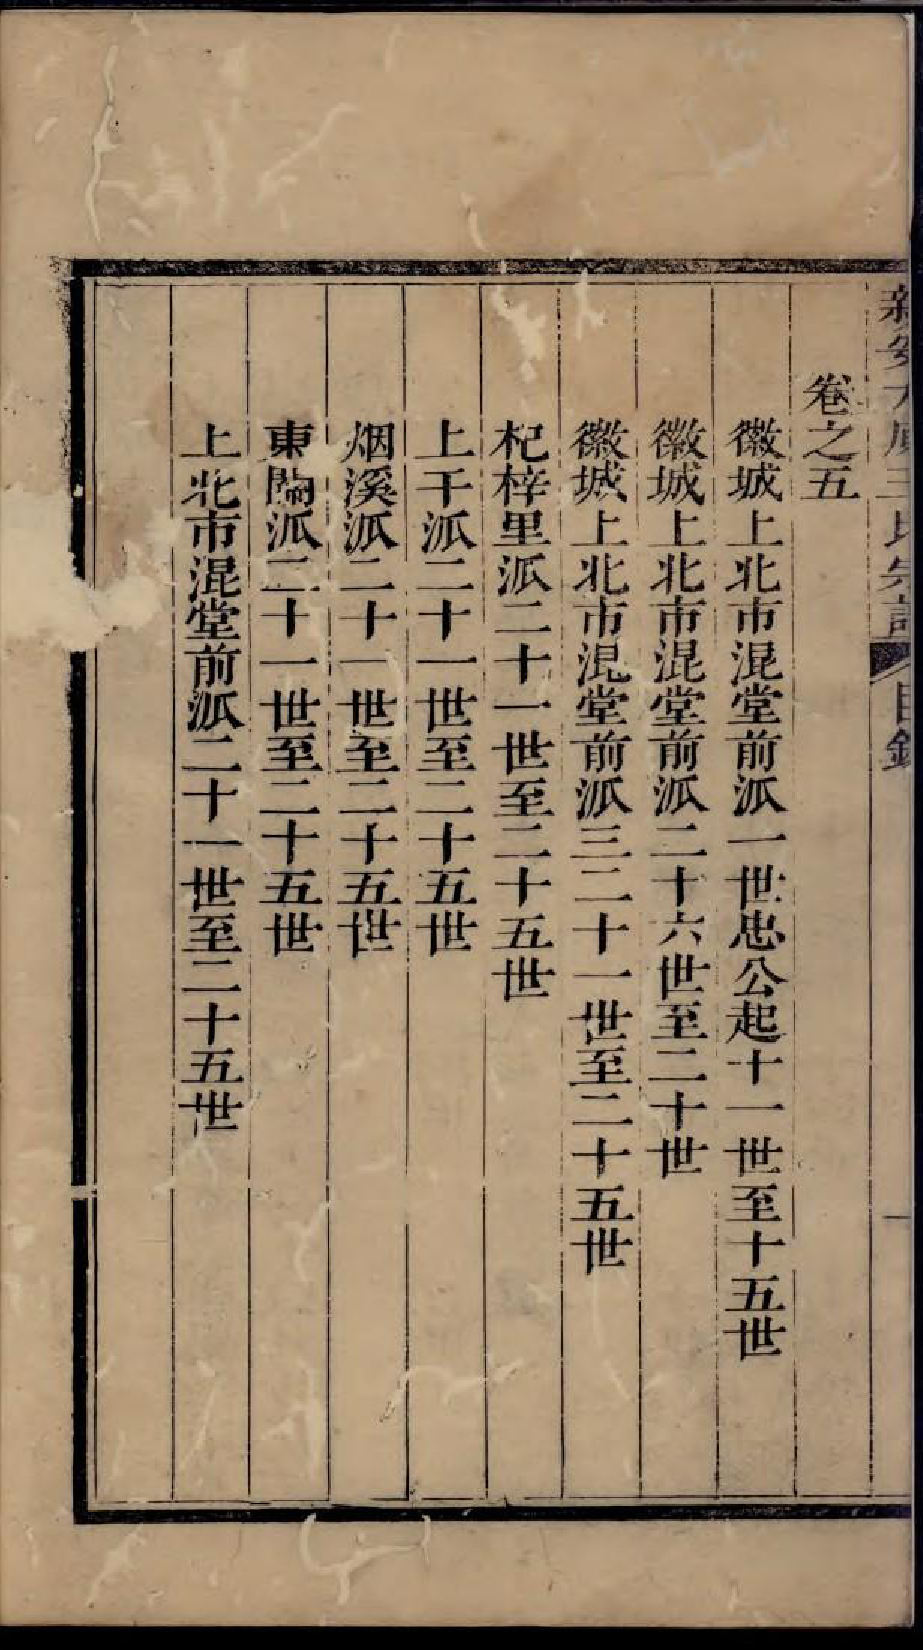 卷之五
徽城上北市混堂前派一世忠公起十一世至十五世
徽城上北市混堂前派二十六世至二十世
徽城上北市混堂前派三二十一世至二十五世
杞梓里派二十一世至二十五世
上干派二十一世至二十五世
烟溪派二十一世至二十五世
東關派二十一世至二十五世
上北市混堂前派二十一世至二十五世
新安大厎王氏宗譜
目錄
一